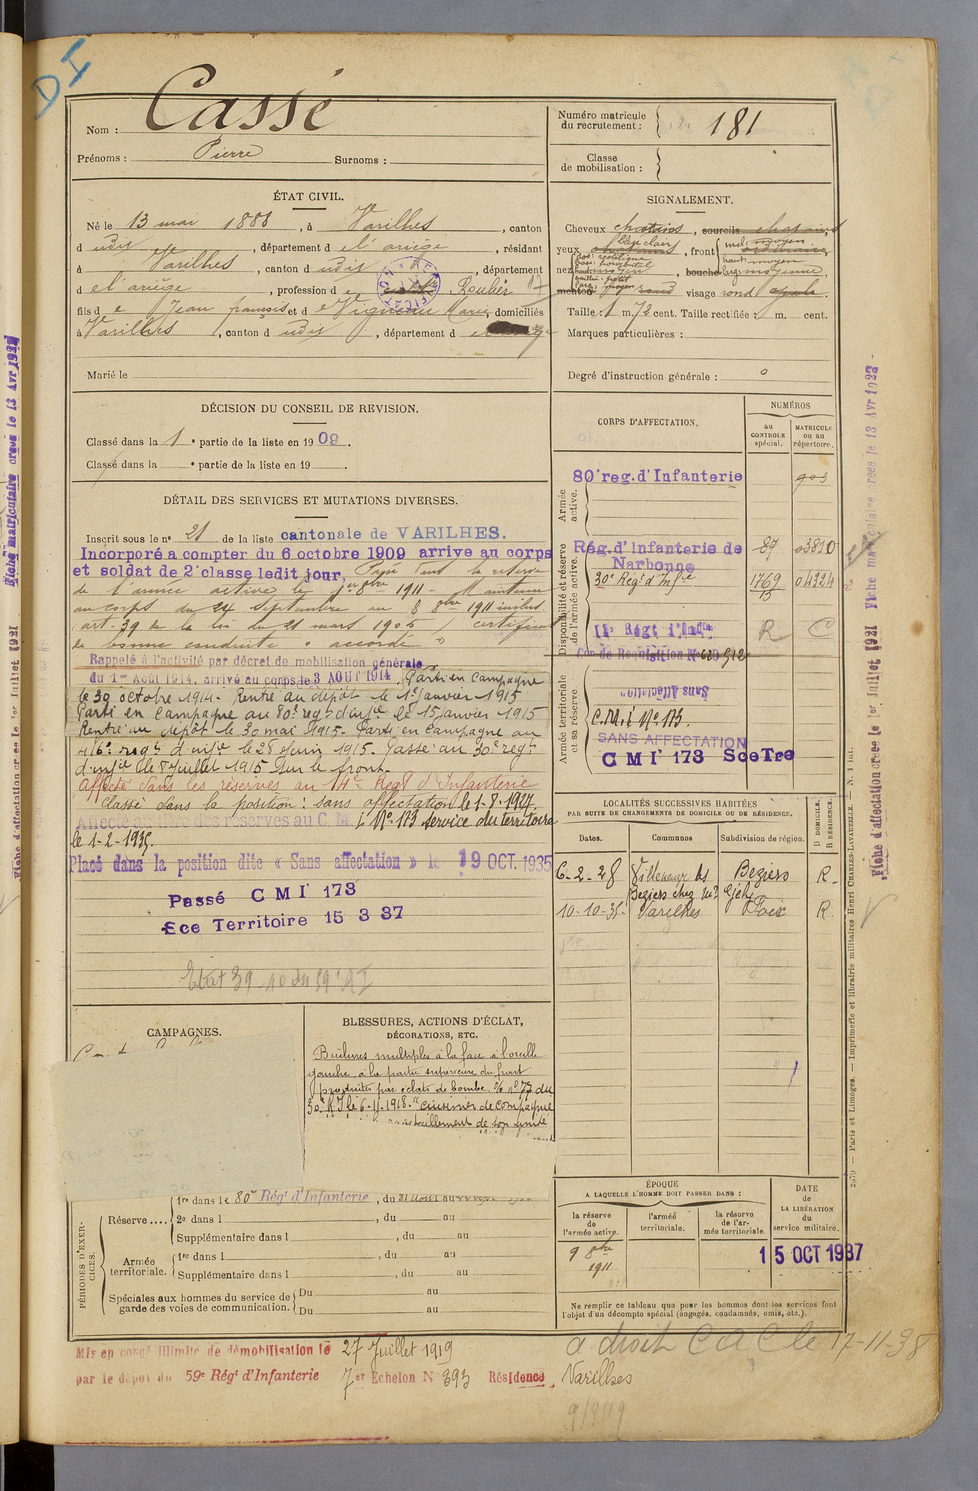 DI
Nom : Cassé
Prénoms : Pierre Surnoms :
Numéro matricule du recrutement : 181
Classe de mobilisation :
ÉTAT CIVIL.
Né le 13 mai 1888, à Varilhes, canton
d udit, département d e l'ariège, résidant
à Varilhes, canton d udit, département
d e l'ariège, profession d e Roulier
fils d e Jean françois et d e Vigneau Marie, domiciliés
à Varilhes, canton d udit, département d
Marié le
SIGNALEMENT.
Cheveux chatains, sourcils chatains
yeux bleu clair, front moyen
nez, bouche moyenne,
menton rond visage rond ovale.
Taille : 1 m. 72 cent. Taille rectifiée : m. cent.
Marques particulières :
Degré d'instruction générale :
DÉCISION DU CONSEIL DE REVISION.
Classé dans la 1e partie de la liste en 1909.
Classé dans la e partie de la liste en 19 .
DÉTAIL DES SERVICES ET MUTATIONS DIVERSES.
Inscrit sous le n° 21 de la liste cantonale de VARILHES.
Incorporé a compter du 6 octobre 1909 arrive au corps
et soldat de 2e classe ledit jour, Passé dans la réserve
de l'armée active le 1er 8bre 1911 - Maintenu
au corps du 24 septembre au 8 8bre 1911 inclus
art. 39 de la loi du 21 mars 1905 / certificat
de bonne conduite accordé
Rappelé à l'activité par décret de mobilisation générale
du 1er Août 1914, arrivé au corps de 3 AOUT 1914. Parti en campagne
le 30 octobre 1914. Rentré au dépôt le 1er Janvier 1915
Parti en campagne au 80e regt d'infie le 15 janvier 1915
Rentré au dépôt le 30 mai 1915. Parti en campagne au
416e regt d'infie le 28 juin 1915. Passé au 30e regt
d'infie le 8 Juillet 1915 sur le front.
Affecté dans les réserves au 14e Regt d'Infanterie
Classé dans la position : sans affectation le 1-8-1924.
Affecté au titre des réserves au C. M. I. N° 173 service du territoire
le 1-2-1935.
Placé dans la position dite « Sans affectation » le 19 OCT. 1935
Passé CMI 173
Sce Territoire 15 3 37
CORPS D'AFFECTATION.
NUMÉROS
au CONTROLE spécial.
MATRICULE ou au répertoire.
Armée active.
80e reg. d'Infanterie 903
Disponibilité et réserve de l'armée active.
Rég. d'Infanterie de Narbonne 87 03810
30e Régt d'Infie 1769/15 04324
R C
Armée territoriale et sa réserve
Sans Affectation
C.M.I N° 173.
SANS AFFECTATION
CMI 173 Sce Tre
LOCALITÉS SUCCESSIVES HABITÉES
PAR SUITE DE CHANGEMENTS DE DOMICILE OU DE RÉSIDENCE.
Dates. Communes Subdivision de région. D DOMICILE. R RÉSIDENCE.
6-2-28 Villeneuve les Beziers Beziers R.
10-10-35 Varilhes Foix R
CAMPAGNES.
BLESSURES, ACTIONS D'ÉCLAT, DÉCORATIONS, ETC.
Brûlures multiples à la face à l'oreille
gauche, à la partie supérieure du front
produites par éclats de bombe. % n° 77 du
30e R I le 6-11-1918. "cuisinier de compagnie
ravitaillement de son unité
PÉRIODES D'EXERCICES.
Réserve ....
1re dans le 80e Régt d'Infanterie, du 21 Août au
2e dans l , du au
Supplémentaire dans l , du au
Armée territoriale.
1re dans l , du au
Supplémentaire dans l , du au
Spéciales aux hommes du service de garde des voies de communication.
Du au
Du au
ÉPOQUE
A LAQUELLE L'HOMME DOIT PASSER DANS :
la réserve de l'armée active.
l'armée territoriale.
la réserve de l'armée territoriale.
DATE de LA LIBÉRATION du service militaire.
9 8bre 1911
15 OCT 1937
Ne remplir ce tableau que pour les hommes dont les services font l'objet d'un décompte spécial (engagés, condamnés, omis, etc.).
Mis en congé illimité de démobilisation le 27 Juillet 1919
par le dépôt du 59e Régt d'Infanterie 7er Echelon N° 393 Résidence Varilhes
a droit C d C le 17-11-38
Fiche d'affectation créée le 1er Juillet 1921
Fiche matriculaire créée le 13 Avr 1923
Paris et Limoges. — Imprimerie et librairie militaires Henri CHARLES-LAVAUZELLE.